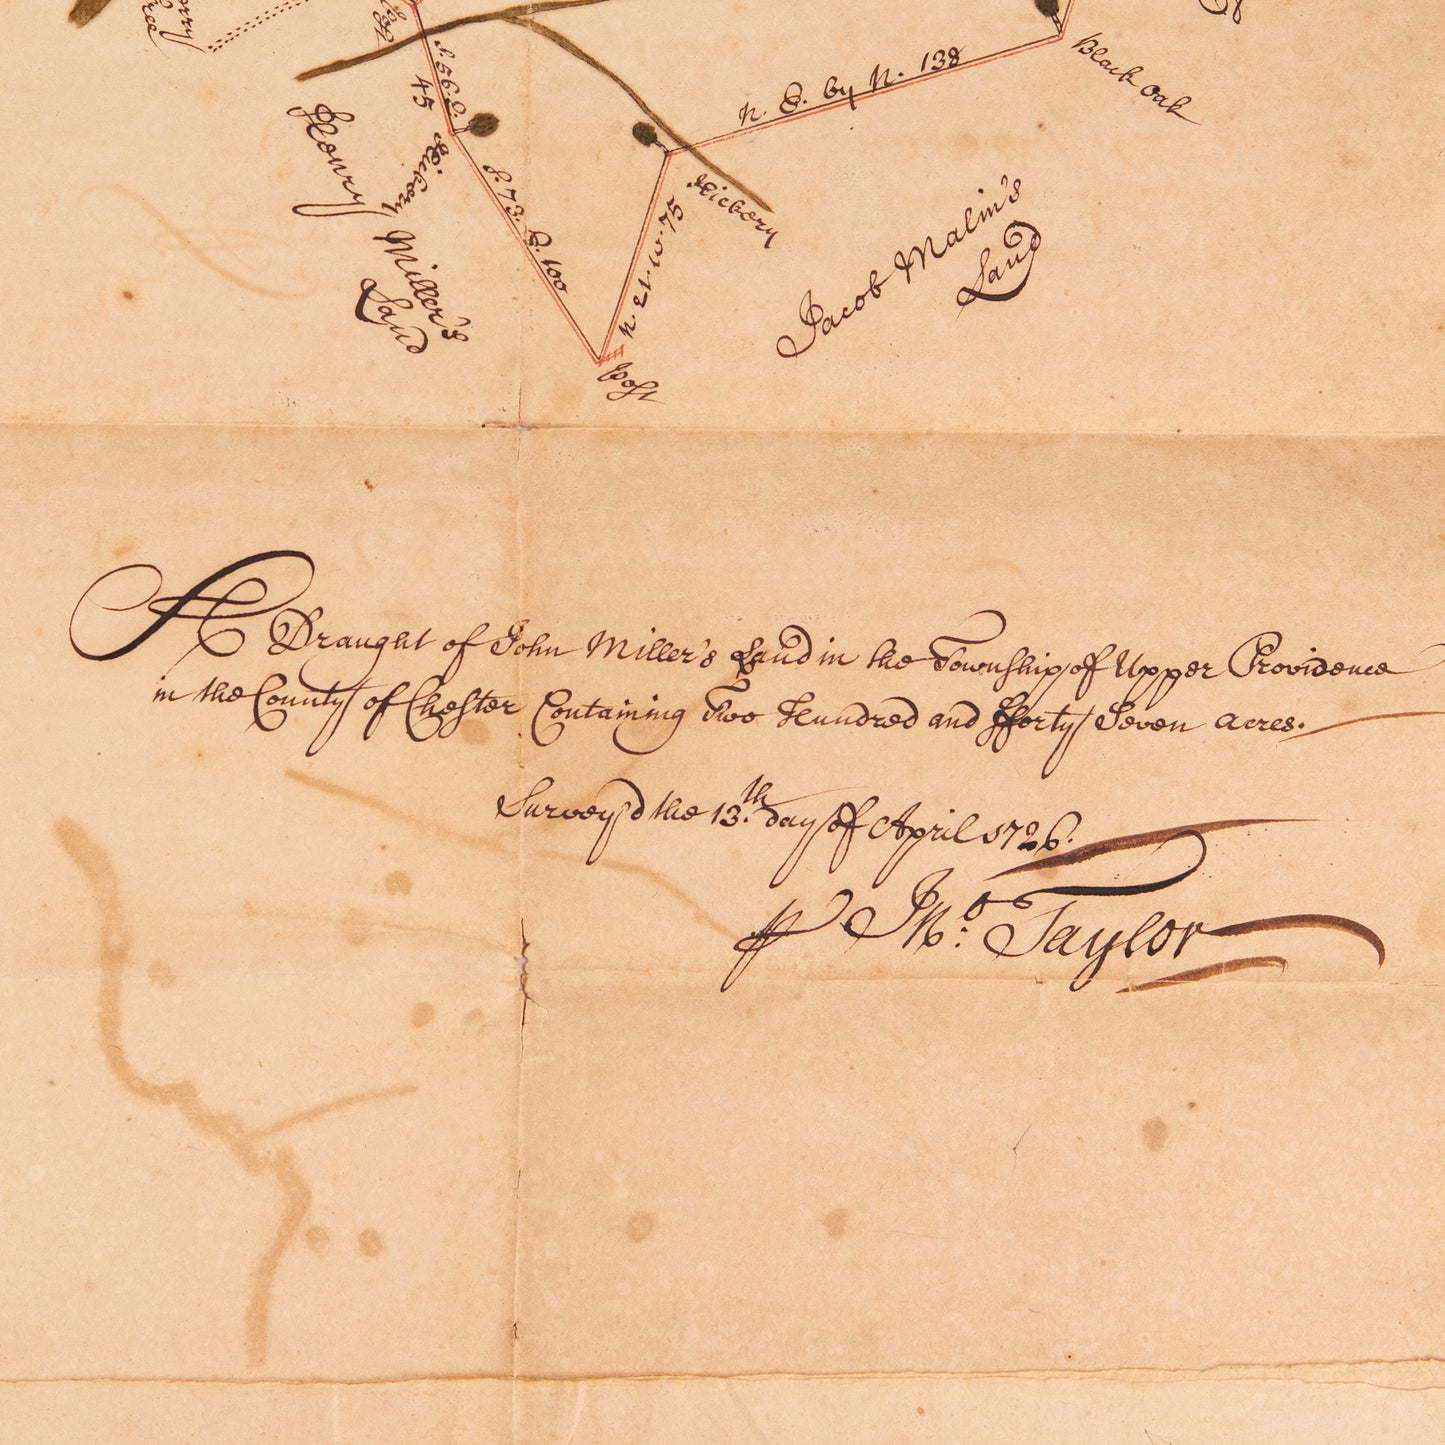 Tree
S. 56. E.
45
Hickory
Henry
Miller's
Land
S. 73. E. 100
N. 21. W. 75
Post
Hickory
N. E. by N. 138
Black oak
Jacob Malin's
Land
A Draught of John Miller's Land in the Township of Upper Providence
in the County of Chester Containing Two Hundred and fforty Seven acres.
Survey'd the 13.th day of April 1726.
Jno: Taylor